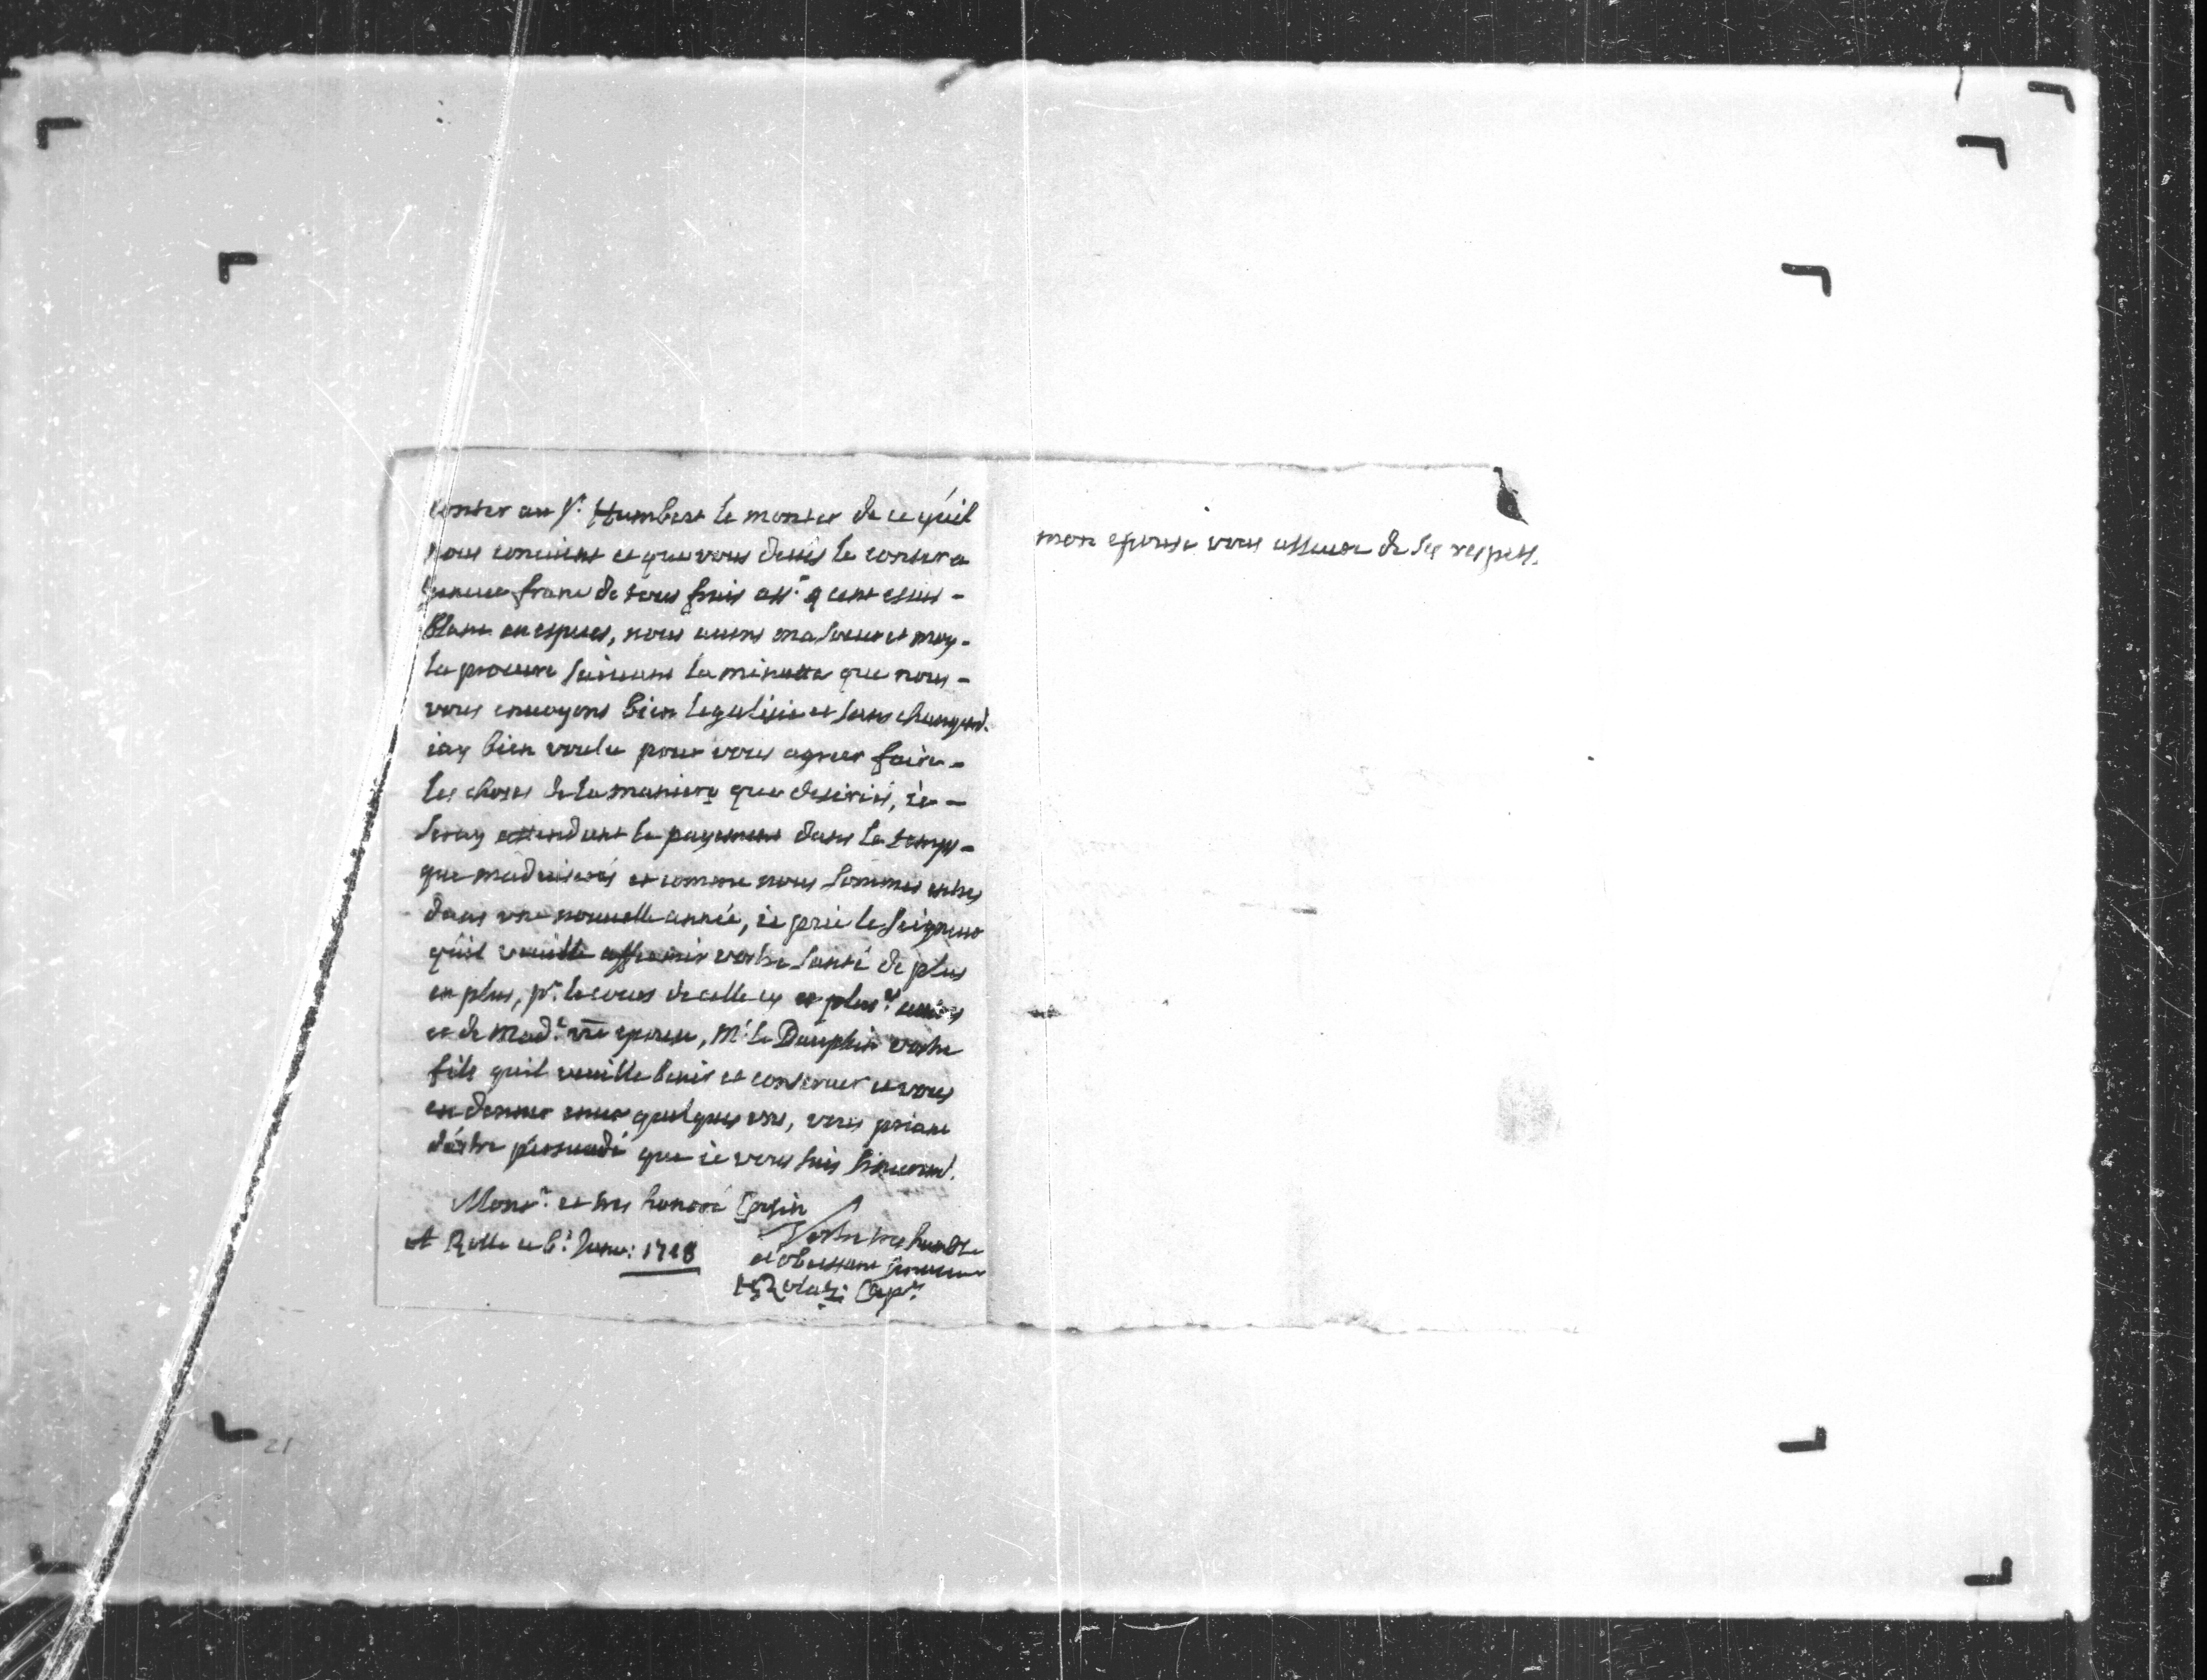 conter au Sr. Humbert le monter de ce qu'il
nous convient et que vous deviés le conter a
Geneve franc de tous frais assr.
Blanc en especes, nous avons ma soeur et moy-
la procure suivant la minutte que nous-
vous envoyons bien legalisée et sans changemt.
iay bien voulu pour vous agreer faire-
les choses de la maniere que desiriés, ie-
seray attendant le payement dans le temps-
que m'adviserés et comme nous sommes entrés
dans une nouvelle année, ie prie le Seigneur
qu'il veuille affermir vostre santé de plus
en plus, pr. le cours de celle cy et plusrs. autres
et de Madr. vre epouse, Mr. le Dauphin vostre
fils qu'il veuille benir et conserver et vous
en donner encor quelques uns, vous priant
d'estre persuadé que ie vous suis sinceremt.
Monsr. et tres honoré Cousin
A Rolle ce 6e. Janv: 1718
Vostre tres humble
et obeissant serviteur
Rolaz: Capne.
mon epouse vous asseure de ses respets.
21